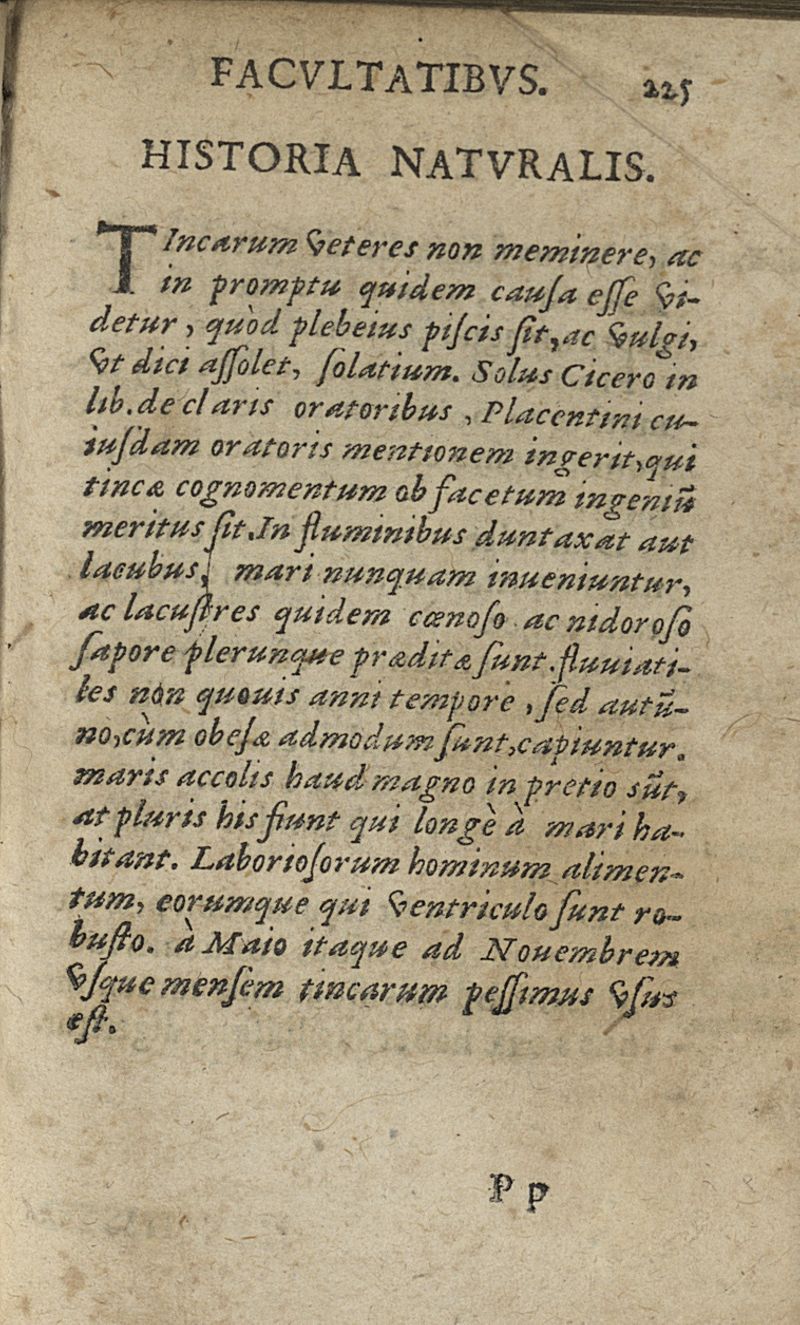 FACVLTATIBVS. 225
HISTORIA NATVRALIS.
TIncarum veteres non meminere, ac
in promptu quidem cauſa eſſe vi-
detur, quòd plebeius piſcis ſit, ac vulgi,
vt dici aſſolet, ſolatium. Solus Cicero in
lib. de claris oratoribus, Placentini cu-
iuſdam oratoris mentionem ingerit, qui
tincæ cognomentum ob facetum ingeniũ
meritus ſit. In fluminibus duntaxat aut
lacubus, mari nunquam inueniuntur,
ac lacuſtres quidem cœnoſo ac nidoroſo
ſapore plerunque præditæ ſunt. fluuiati-
les non quouis anni tempore, ſed autũ-
no, cùm obeſæ admodum ſunt, capiuntur.
maris accolis haud magno in pretio sũt,
at pluris his fiunt qui longè à mari ha-
bitant. Laborioſorum hominum alimen-
tum, eorumque qui ventriculo ſunt ro-
buſto. à Maio itaque ad Nouembrem
vſque menſem tincarum peſſimus vſus
eſt.
Pp